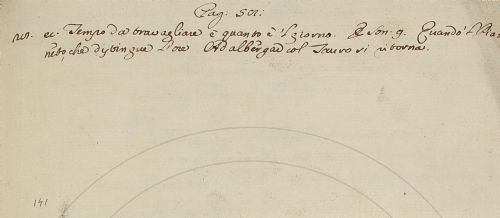 Pag: 501.
et. Tempo da travagliare è quanto è 'l giorno. E son. 9. Quando 'l Pia-
neta, che distingue l'ore Ad albergar col Tauro si ritorna.
141